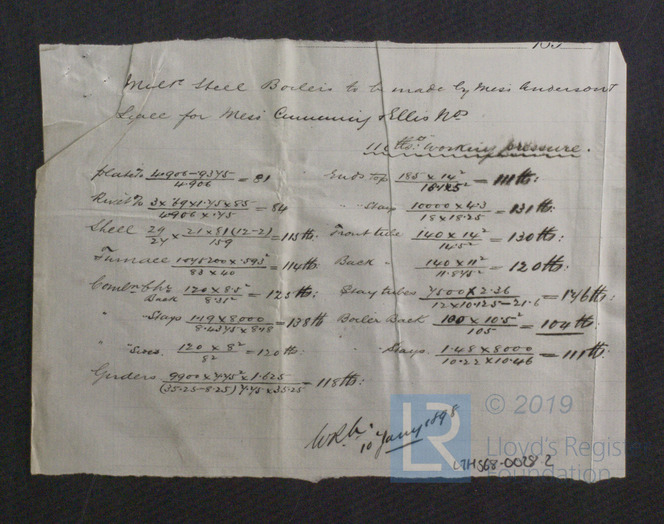 Mild Steel Boilers to be made by Mess Anderson &
Lyall for Mess Cumming & Ellis No
110 lbs. Working pressure.
plate % 4.906-.9375 / 4.906 = 81
Rivet % 3 x .69 x 1.75 x 85 / 4.906 x .75 = 84
Shell 29/27 x 21 x 81 (12-2) / 159 = 115 lb:
Furnace / 83 x 40 = 114 lb:
Comb. Chr Back 120 x 8.5² / 8.31² = 125 lb:
" Stays 1.49 x 8000 / 8.4375 x = 138 lb
" Sides 120 x 8² / 8² = 120 lb:
Girders 9900 x 7.75² x 1.625 / (35.25-8.25) 7.75 x 35.25 = 118 lb:
Ends top 185 x 14² / = 111 lb:
" " Stay 10000 x 4.3 / 18 x 18.25 = 131 lb:
Front tube 140 x 14² / 14.5² = 130 lb:
Back " 140 x 11² / 11.875² = 120 lb:
Stay tubes 7500 x 2.36 / 12 x 10.125 - 21.6 = 176 lb:
Boiler Back 100 x 10.5² / 105 = 104 lb:
" Stays 1.48 x 8000 / 10.22 x 10.46 = 111 lb:
10 Jany 1898
LR
© 2019
Lloyd's Register
Foundation